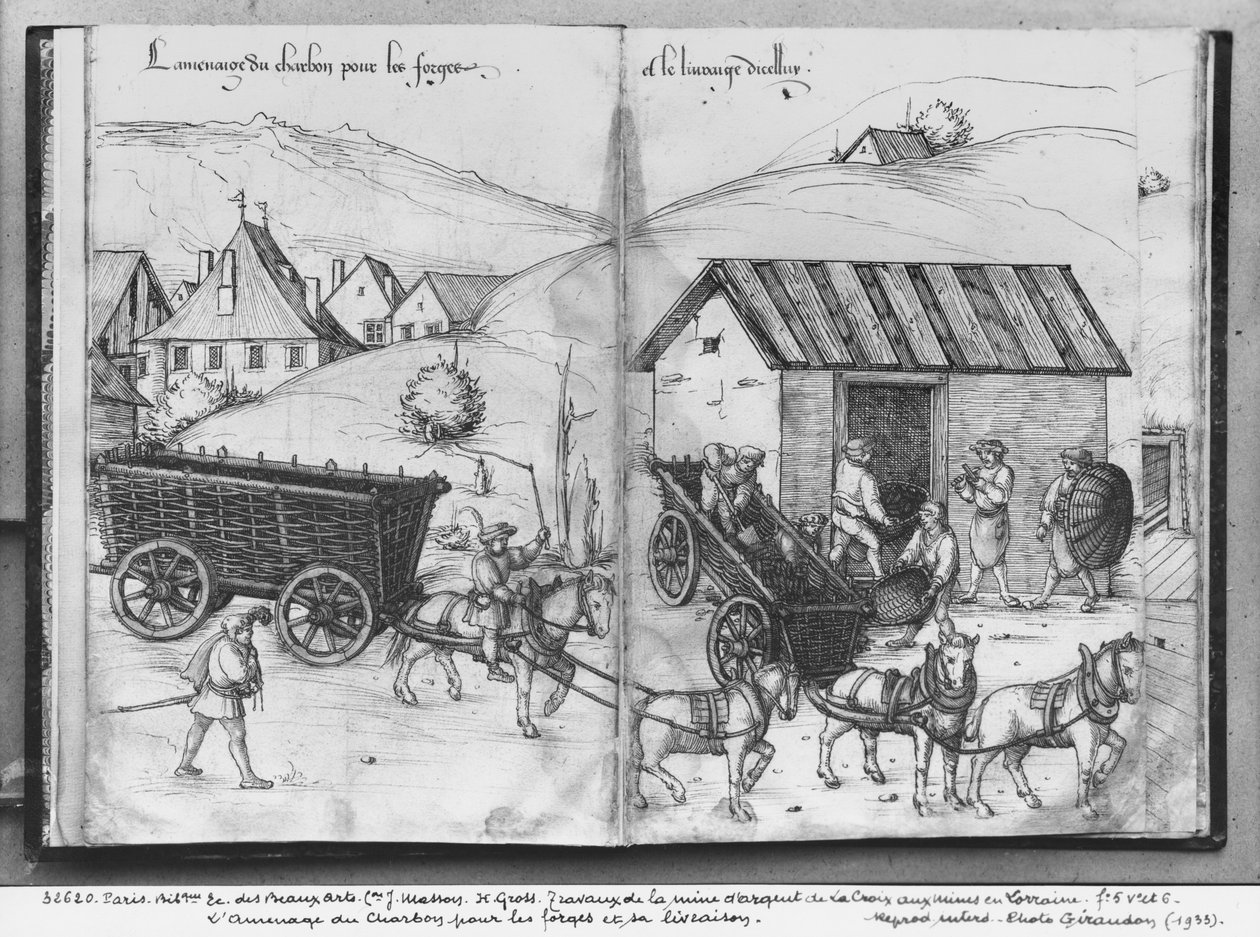 Lamenaige du charbon pour les forges
et le livraige dicelluy.
32620. Paris. Bibque Ec. des Beaux Arts. Con J. Masson. H. Gross. Travaux de la mine d'argent de La Croix aux Mines en Lorraine. fo 5 vo et 6 -
L'Amenage du Charbon pour les forges et sa livraison.
Reprod. interd. - Photo Giraudon (1933).